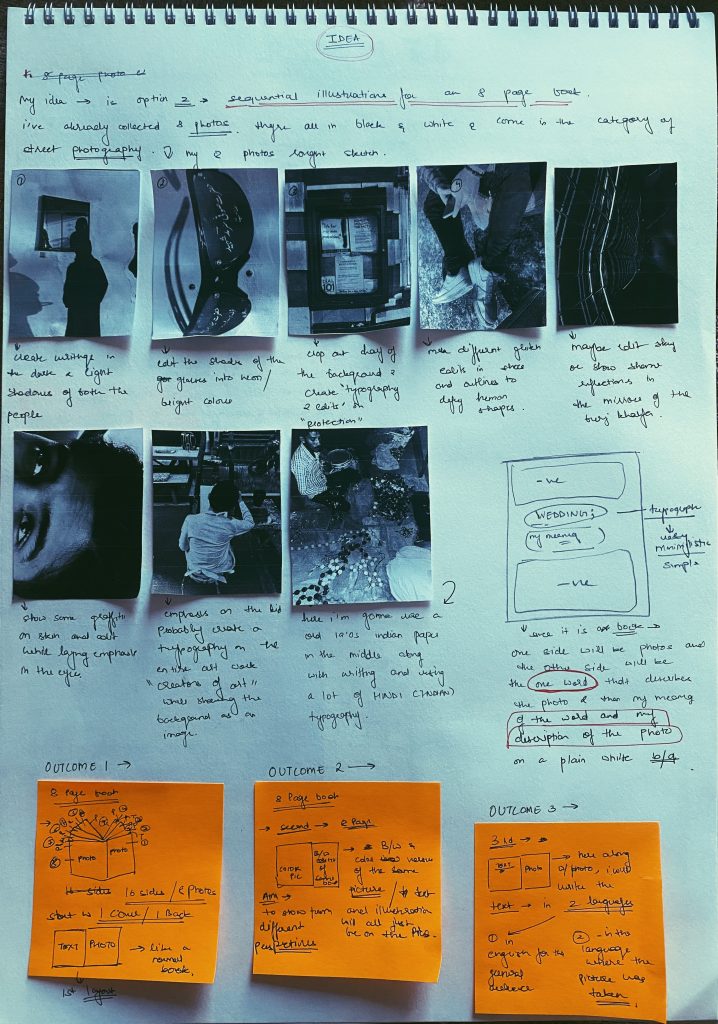 IDEA
8 page photo
My idea → is option 2 → sequential illustrations for an 8 page book.
i've already collected 8 photos. they're all in black & white & come in the category of
street photography. ↓ my 8 photos
①
②
③
④
create writings in
the dark & light
shadows of both the
people
edit the shades of the
glasses into neon/
bright colour
crop out of
the background &
create "typography
& edits" on
"protection"
make different glitch
edits in shoe
and outlines to
defy human
shapes.
maybe edit sky
or show some
reflections in
the mirrors of the
burj khalifa.
show some graffiti
on skin and edit
while laying emphasis
on the eyes
emphasis on the kid
probably create a
typography on the
entire art work
"creators of art"
while showing the
background as an
image.
here i'm gonna use a
old indian paper
in the middle along
with writing and using
a lot of HINDI (INDIAN)
typography.
-ve
WEDDING;
my meaning
-ve
typography
↓
very
minimalistic
simple
↓ since it is a book →
one side will be photos and
the other side will be
the one word that describes
the photo & then my meaning
of the word and my
description of the photo
on a plain white b/g.
OUTCOME 1 →
8 Page book
photo photo
16 sides / 8 photos
1 Cover / 1 Back
TEXT PHOTO → like a
normal
book.
1st layout
OUTCOME 2 →
8 Page book
→ second → 8 page
COLOR
PIC
B/W
→ B/W &
color version
of the same
picture / text
and illustration
will all just
be on the pics.
Aim →
to show
different
perspectives
OUTCOME 3 →
3rd →
TEXT Photo
→ here along
w/ photo, i will
write the
text → in 2 languages
① in
english for the
general
audience
② - in the
language
where the
picture was
taken.